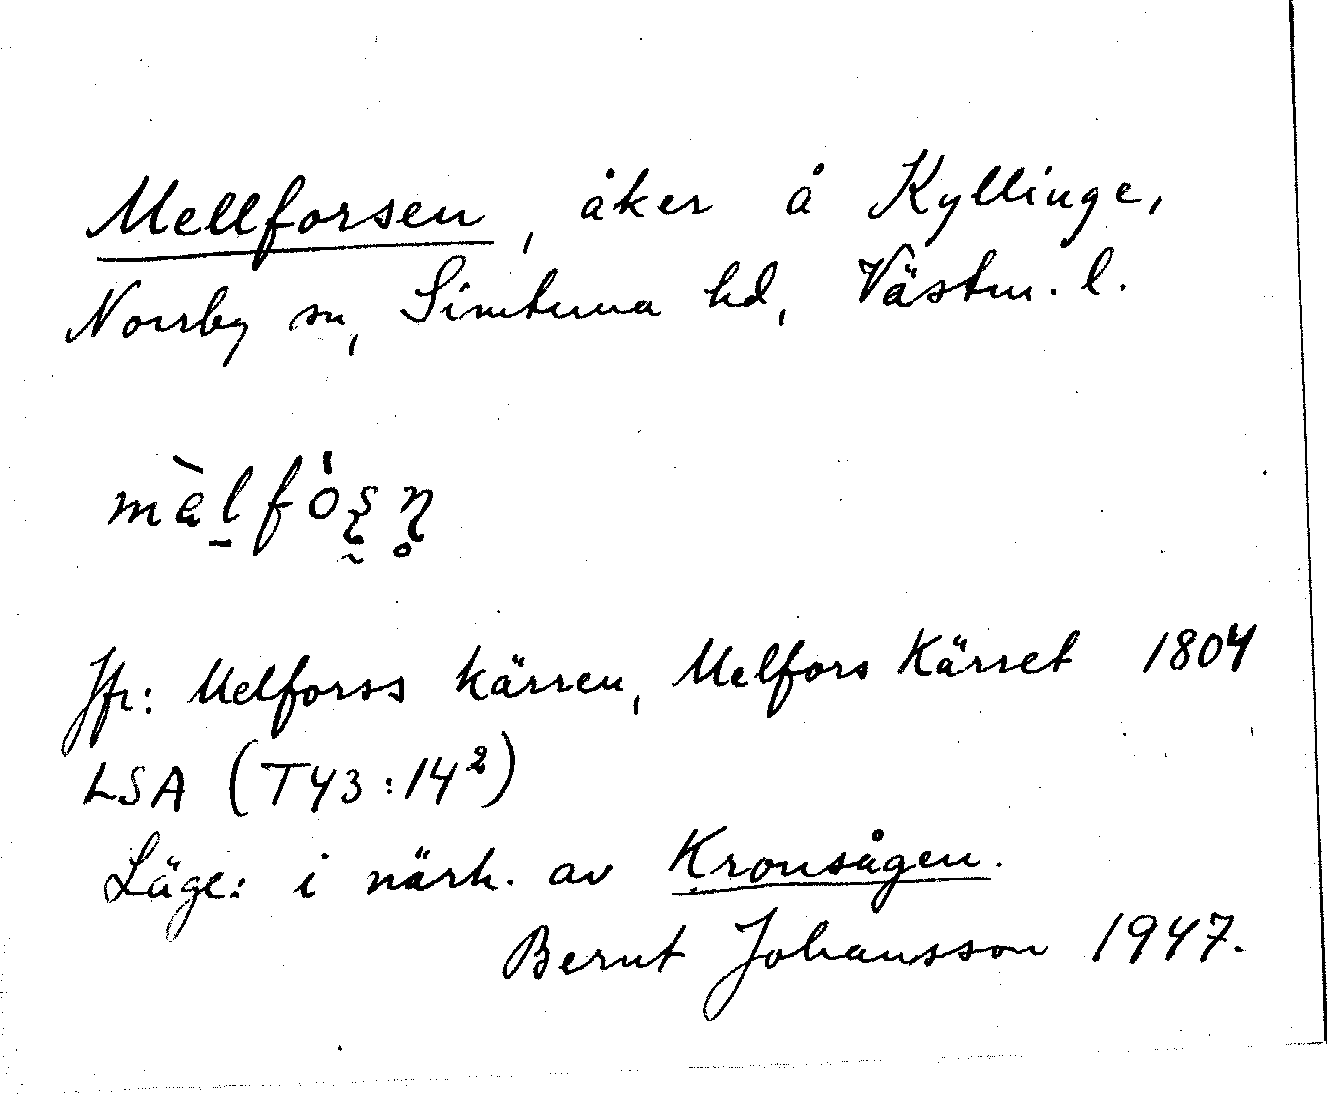 Mellforsen, åker å Kyllinge,
Norrby sn, Simtuna hd, Västm. l.
màl̠fó̀ʂ̰ɳ̥
Jfr: Melforss kärren, Melfors Kärret 1804
LSA (T43:14²)
Läge: i närh. av Kronsågen.
Bernt Johansson 1947.